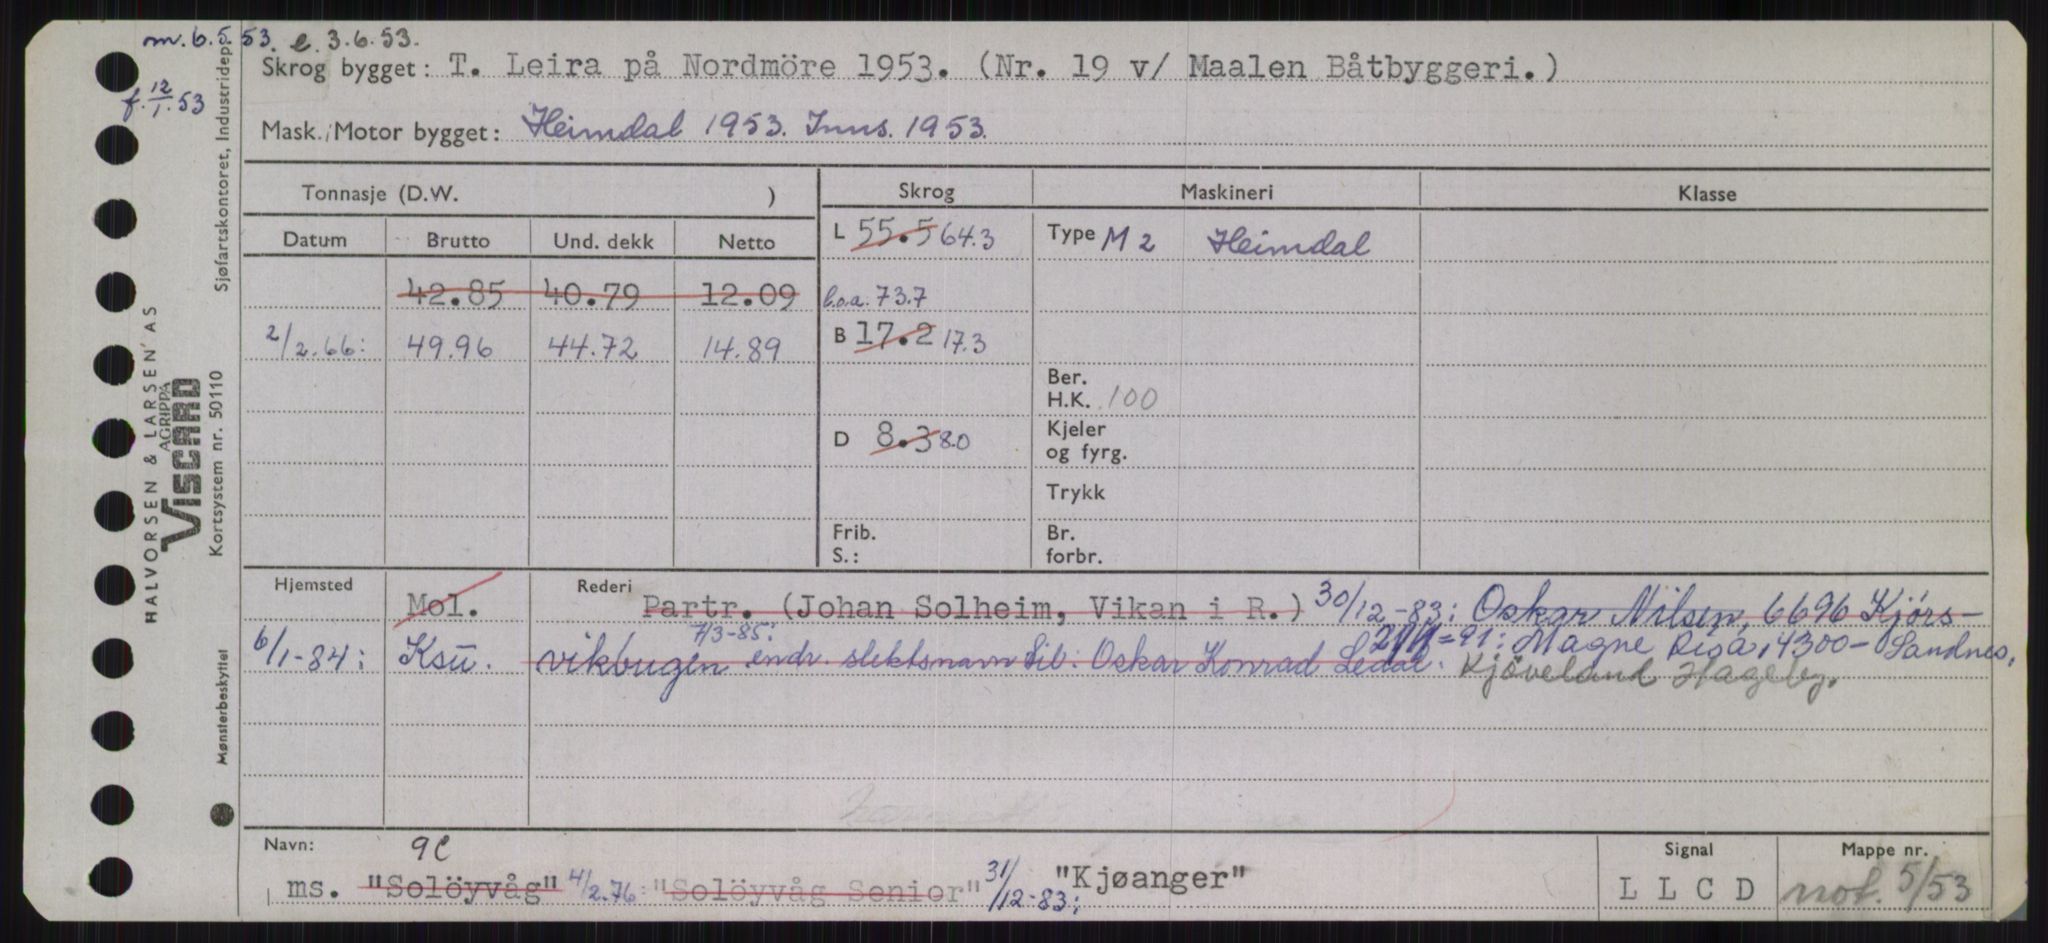 m. 6.5.53. e. 3.6.53.
f. 12/1.53
Skrog bygget: T. Leira på Nordmöre 1953. (Nr. 19 v/ Maalen Båtbyggeri.)
Mask./Motor bygget: Heimdal 1953. Inns. 1953.
Tonnasje (D.W. ) Skrog Maskineri Klasse
Datum Brutto Und. dekk Netto
L 55.5 64.3 Type M 2 Heimdal
42.85 40.79 12.09 l.o.a. 73.7
2/2.66: 49.96 44.72 14.89 B 17.2 17.3
Ber.
H.K. 100
D 8.3 8.0 Kjeler
og fyrg.
Trykk
Frib. Br.
S.: forbr.
Hjemsted Mol. Rederi Partr. (Johan Solheim, Vikan i R.) 30/12-83: Oskar Nilsen, 6696 Kjørs-
7/3-85:
6/1-84: Ksu. vikbugen endr. slektsnavn til: Oskar Konrad Ledal. =91: Magne Risa, 4300- Sandnes,
Kjöveland Hageby.
Navn: 9c Signal Mappe nr.
ms. "Solöyvåg" 4/2.76: "Solöyvåg Senior" 31/12-83: "Kjøanger" L L C D not. 5/53
HALVORSEN & LARSEN' AS
AGRIPPA
VISCARD
Kortsystem nr. 50110
Sjøfartskontoret, Industridep.
Mønsterbeskyttet